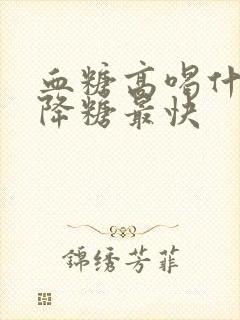 血糖高喝什
降糖最快
錦绣芳菲